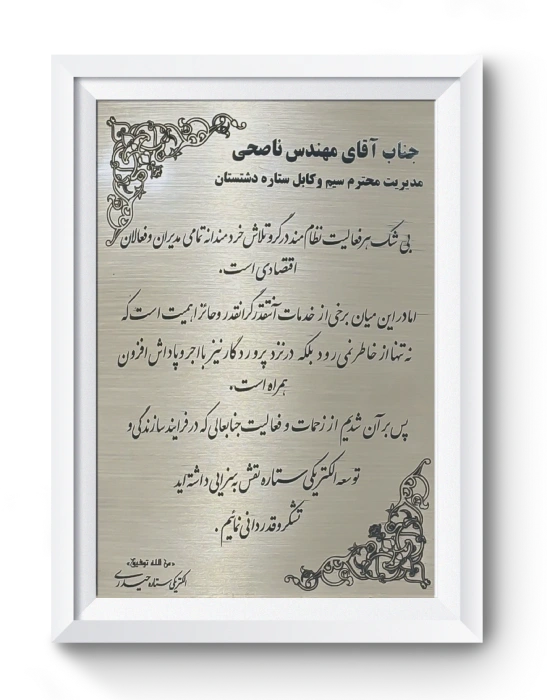 جناب آقای مهندس ناصحی
مدیریت محترم سیم و کابل ستاره دشتستان
بی شک هر فعالیت نظام مند در گرو تلاش خردمندانه تمامی مدیران و فعالان
اقتصادی است.
اما در این میان برخی از خدمات آنقدر گرانقدر و حائز اهمیت است که
نه تنها از خاطر نمی رود بلکه در نزد پروردگار نیز با اجر و پاداش افزون
همراه است.
پس بر آن شدیم از زحمات و فعالیت جنابعالی که در فرایند سازندگی و
توسعه الکتریکی ستاره نقش بسزایی داشته اید
تشکر و قدردانی نمائیم.
«من الله توفیق»
الکتریکی ستاره حیدری